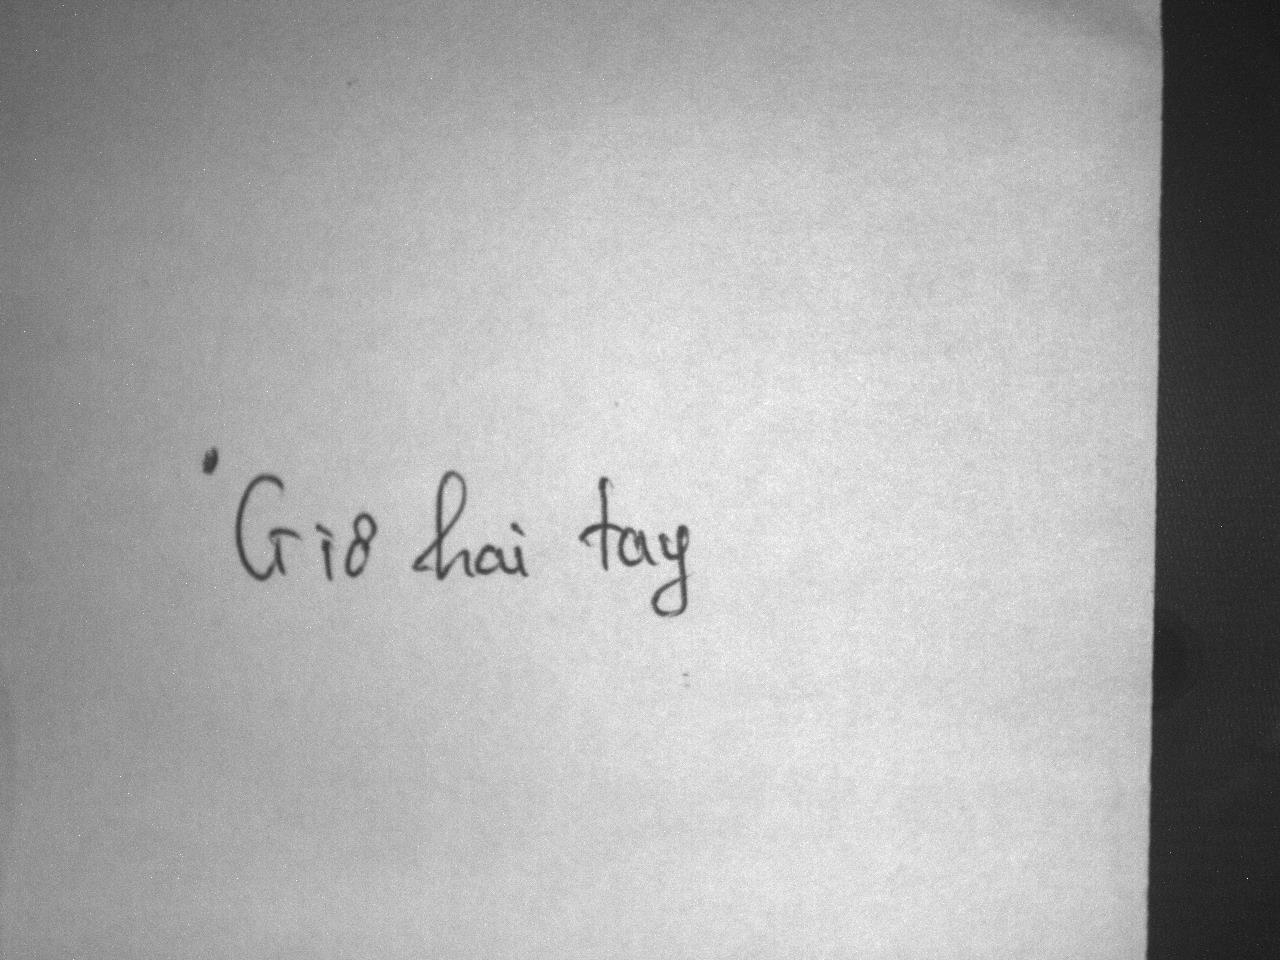 Giơ hai tay